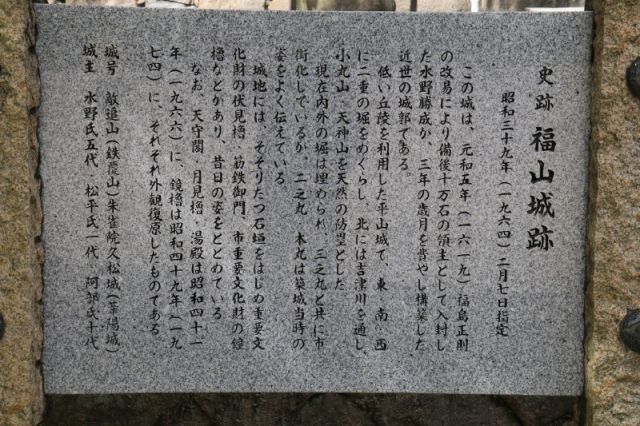 史跡 福山城跡
昭和三十九年(一九六四)二月七日指定
この城は、元和五年(一六一九)福島正則
の改易により備後十万石の領主として入封し
た水野勝成が、三年の歳月を費やし構築した
近世の城郭である。
低い丘陵を利用した平山城で、東 南 西
に二重の堀をめぐらし、北には吉津川を通し、
小丸山 天神山を天然の防塁とした
現在内外の堀は埋められ、三之丸と共に市
街化しているが、二之丸 本丸は築城当時の
姿をよく伝えている
城地には、そそりたつ石垣をはじめ重要文
化財の伏見櫓、筋鉄御門、市重要文化財の鐘
櫓などがあり、昔日の姿をとどめている
なお、天守閣、月見櫓、湯殿は昭和四十一
年(一九六六)に、鏡櫓は昭和四十九年(一九
七四)に、それぞれ外観復原したものである
城号 敵追山(鉄覆山)朱雀院久松城(葦陽城)
城主 水野氏五代 松平氏一代 阿部氏十代